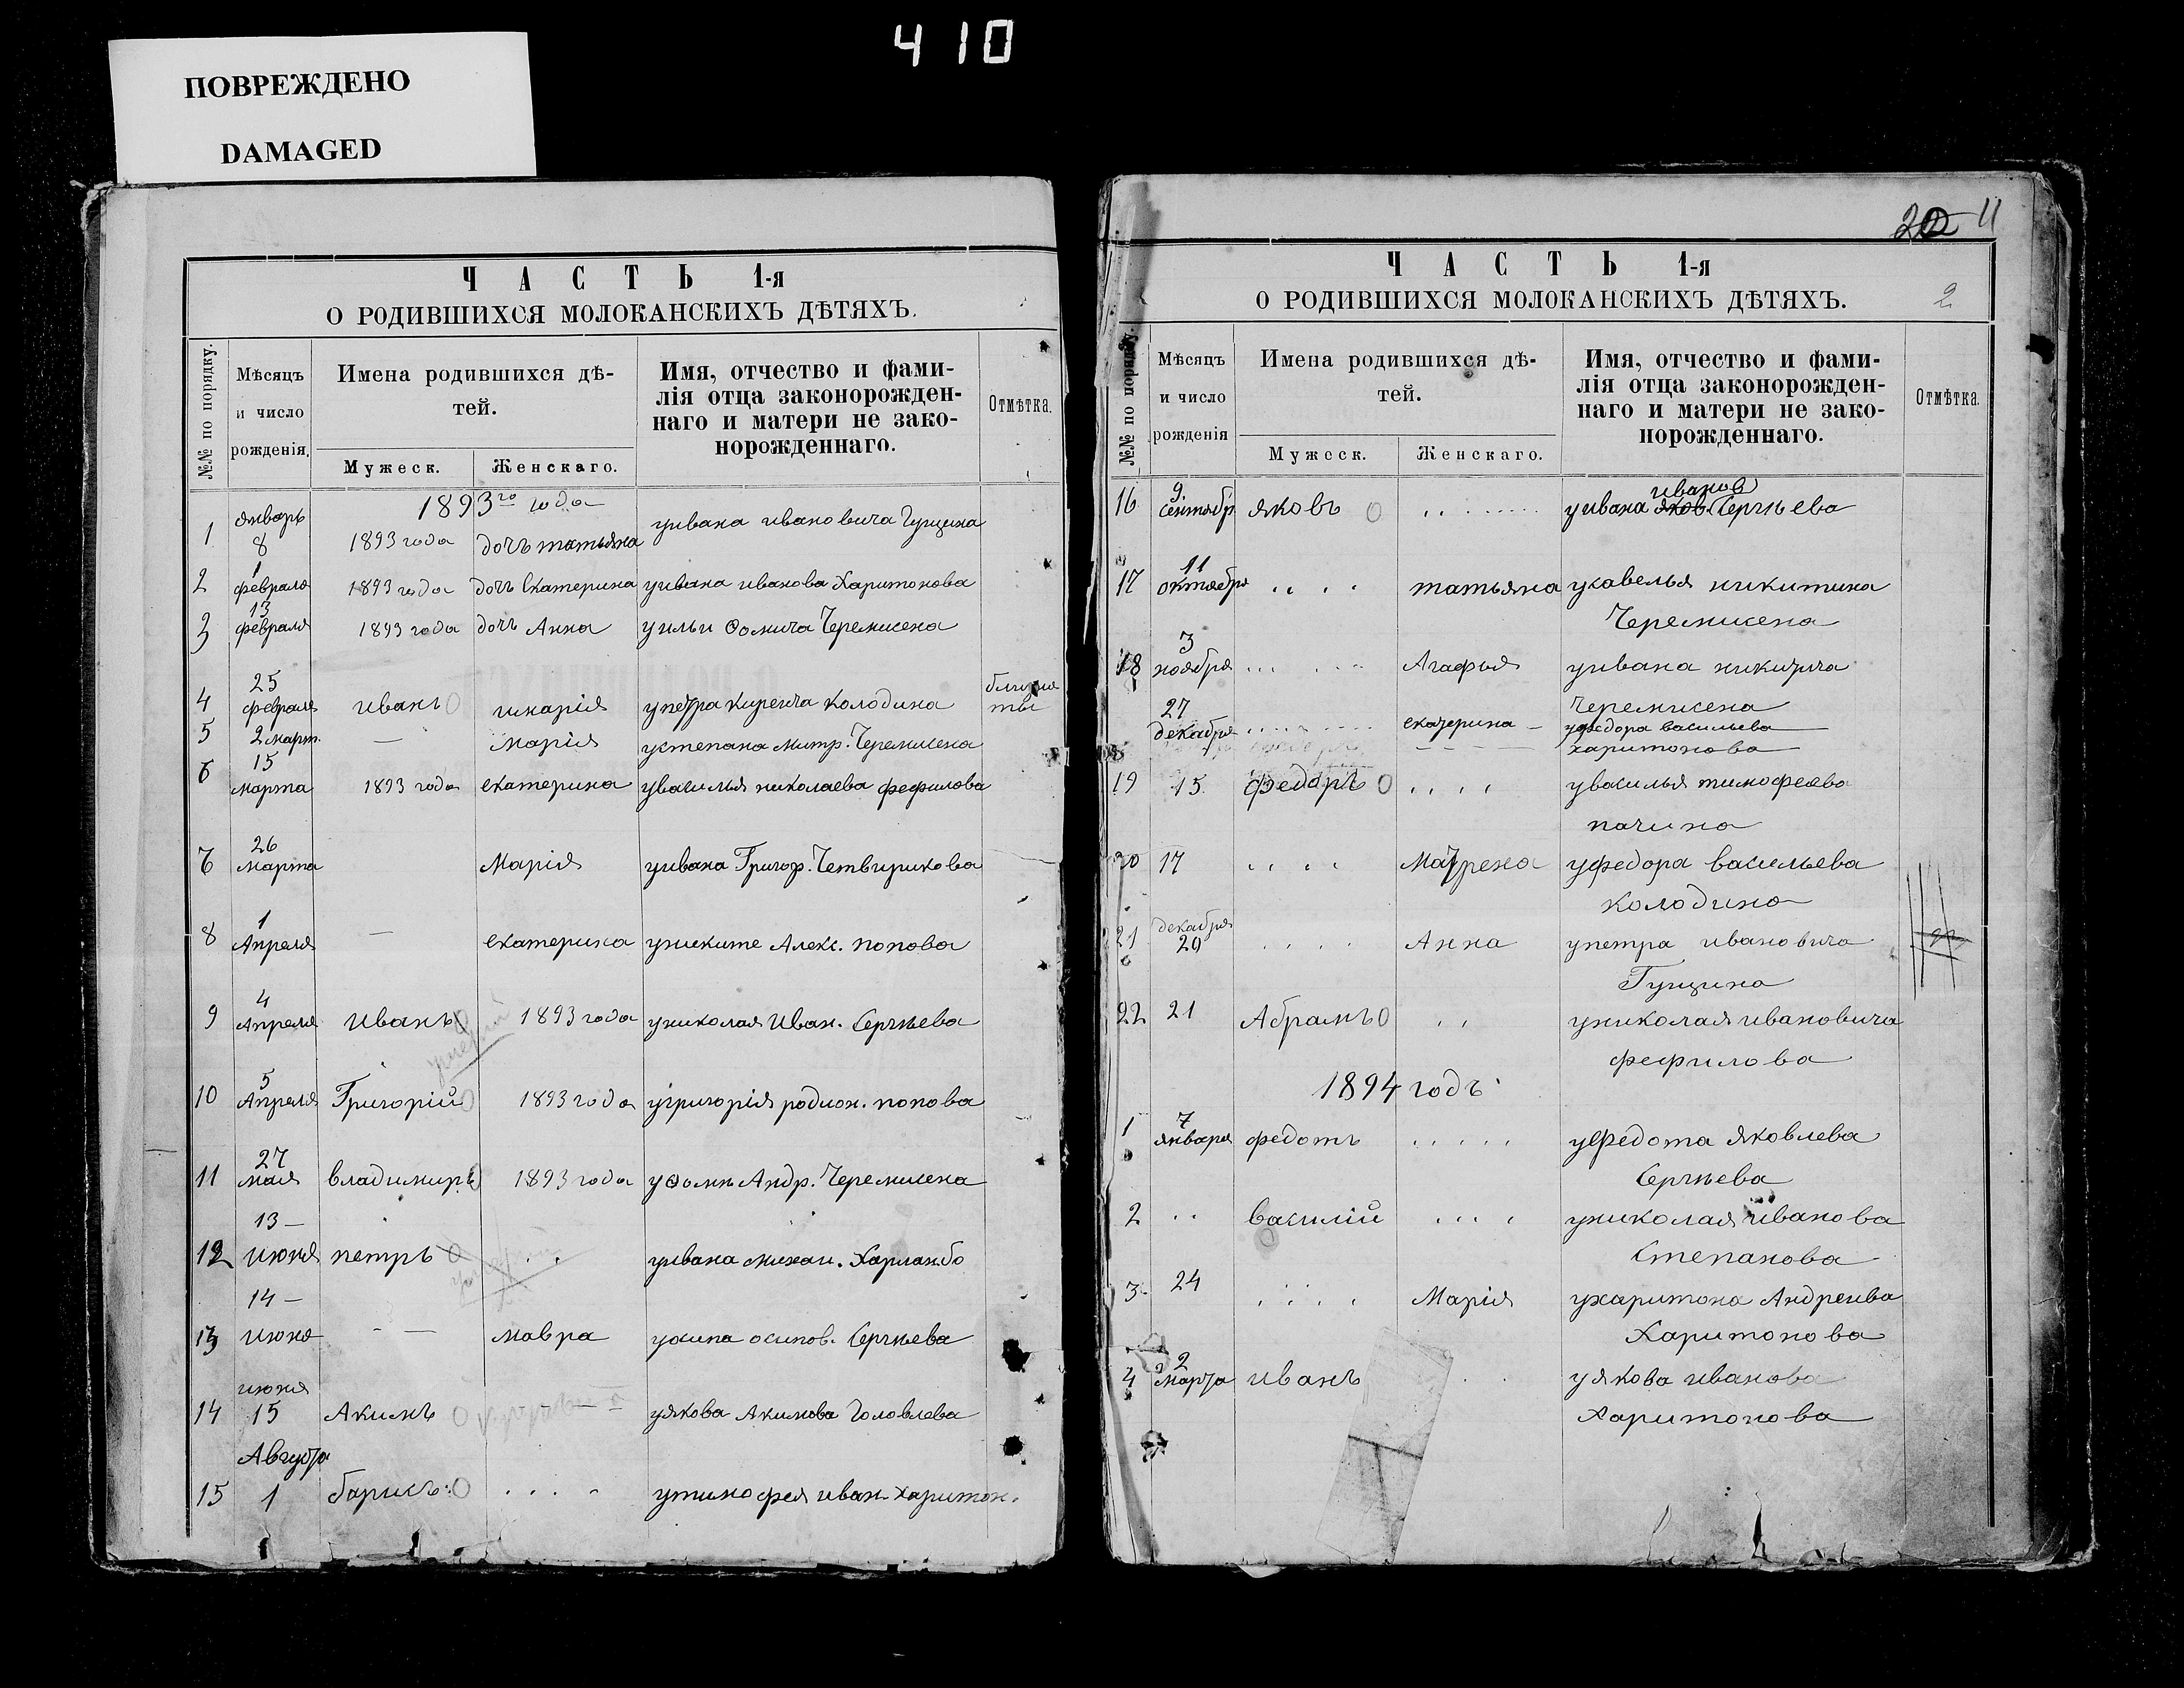 410
ПОВРЕЖДЕНО
DAMAGED
ЧАСТЬ 1-я
О РОДИВШИХСЯ МОЛОКАНСКИХЪ ДѢТЯХЪ.
№№ по порядку.
Мѣсяцъ и число рожденія.
Имена родившихся дѣ-
тей.
Мужеск.
Женскаго.
Имя, отчество и фами-
лія отца законорожден-
наго и матери не зако-
норожденнаго.
Отмѣтка.
1893го года
1 январь 8 1893 года дочь татьяна уивана ивановича Гущина
2 1 февраля 1893 года дочь Екатерина уивана иванова Харитонова
3 13 февраля 1893 года дочь Анна уильи Ѳомича Черемисена
4 25 февраля иванъ имарія упетра Киреича Колодина
5 2 март. — Марія устепана митр. Черемисена
6 15 марта 1893 года екатерина увасилья николаева фефилова
7 26 марта Марія уивана Григор. Четвирикова
8 1 Апреля — екатерина униките Алекс. попова
9 4 Апреля иванъ 1893 года униколая Иван. Сергѣева
10 5 Апреля Григорій 1893 года угригорія родион. попова
11 27 мая владимиръ 1893 года уѲомы Андр. Черемисена
12 13 — июня петръ уивана михаи.
13 14 — июня — — мавра уосипа осипов. Сергѣева
14 июня 15 Акимъ уякова Акимова Головлева
15 Августа 1 барисъ утимофея иван. харитон.
20 11
ЧАСТЬ 1-я
О РОДИВШИХСЯ МОЛОКАНСКИХЪ ДѢТЯХЪ.
2
№№ по порядку.
Мѣсяцъ и число рожденія
Имена родившихся дѣ-
тей.
Мужеск.
Женскаго.
Имя, отчество и фами-
лія отца законорожден-
наго и матери не зако-
норожденнаго.
Отмѣтка.
иванов
16 9 сентябр яковъ уивана яков. Сергѣева
17 11 октября татьяна усавелья никитина
Черемисена
18 3 ноября Агафья уивана никитича
Черемисена
27 декабря екатерина — уфедора васильева
харитонова
19 15 Федоръ увасилья тимофеева
пачина
20 17 Матрена уфедора васильева
колодина
21 декабря 20 Анна упетра ивановича
Гущина
22 21 Абрамъ униколая ивановича
фефилова
1894 годъ
1 7 января федотъ уфедота Яковлева
Сергѣева
2 василій униколая иванова
Степанова
3 24 Марія ухаритона Андреива
Харитонова
4 2 марта иванъ уякова иванова
Харитонова